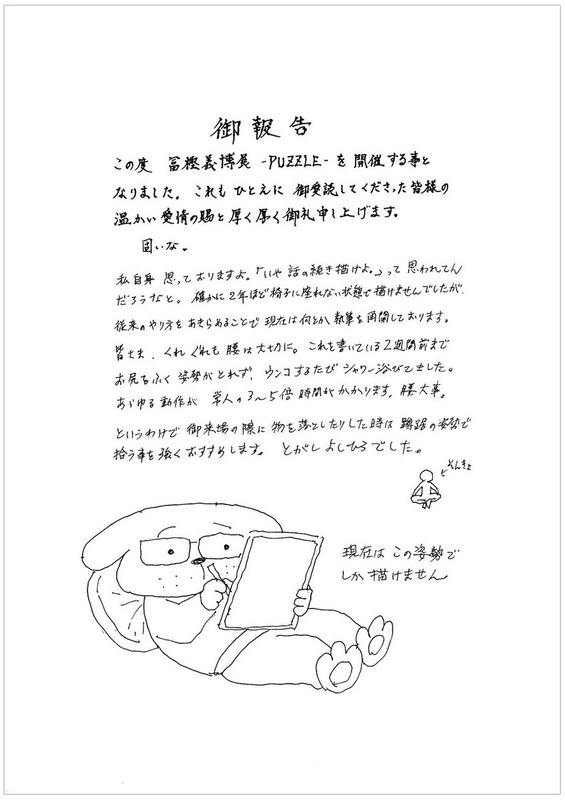 御報告
この度 冨樫義博展 -PUZZLE- を開催する事と
なりました。これもひとえに御愛読してくださった皆様の
温かい愛情の賜と厚く厚く御礼申し上げます。
固いな。
私自身思っておりますよ。「いや話の続き描けよ。」って思われてん
だろうなと。確かに2年ほど椅子に座れない状態で描けませんでしたが、
従来のやり方をあきらめることで現在は何とか執筆を再開しております。
皆さま、くれぐれも腰は大切に。これを書いている2週間前まで
お尻をふく姿勢がとれず、ウンコするたびシャワー浴びてました。
あらゆる動作が常人の3〜5倍時間がかかります。腰大事。
というわけで御来場の際に物を落としたりした時は蹲踞の姿勢で
拾う事を強くおすすめします。とがしよしひろでした。
そんきょ
現在はこの姿勢で
しか描けません